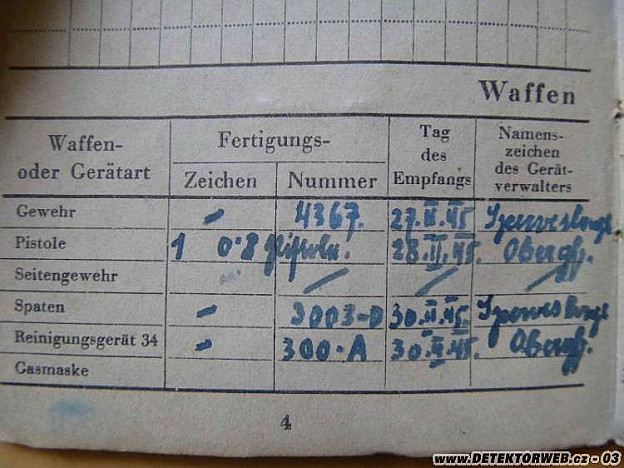 Waffen
Waffen-
oder Gerätart
Fertigungs-
Zeichen
Nummer
Tag
des
Empfangs
Namens-
zeichen
des Gerät-
verwalters
Gewehr - 4367. 27.II.45.
Pistole 1 0·8 28.II.45. Obergfr.
Seitengewehr
Spaten - 3003-D 30.II.45.
Reinigungsgerät 34 - 300-A 30.II.45. Obergfr.
Gasmaske
4
www.DETEKTORWEB.cz - 03